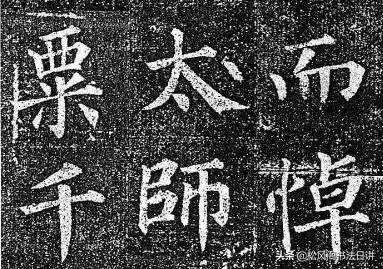 而悼
太師
粟千
头条 @松风阁书法日讲